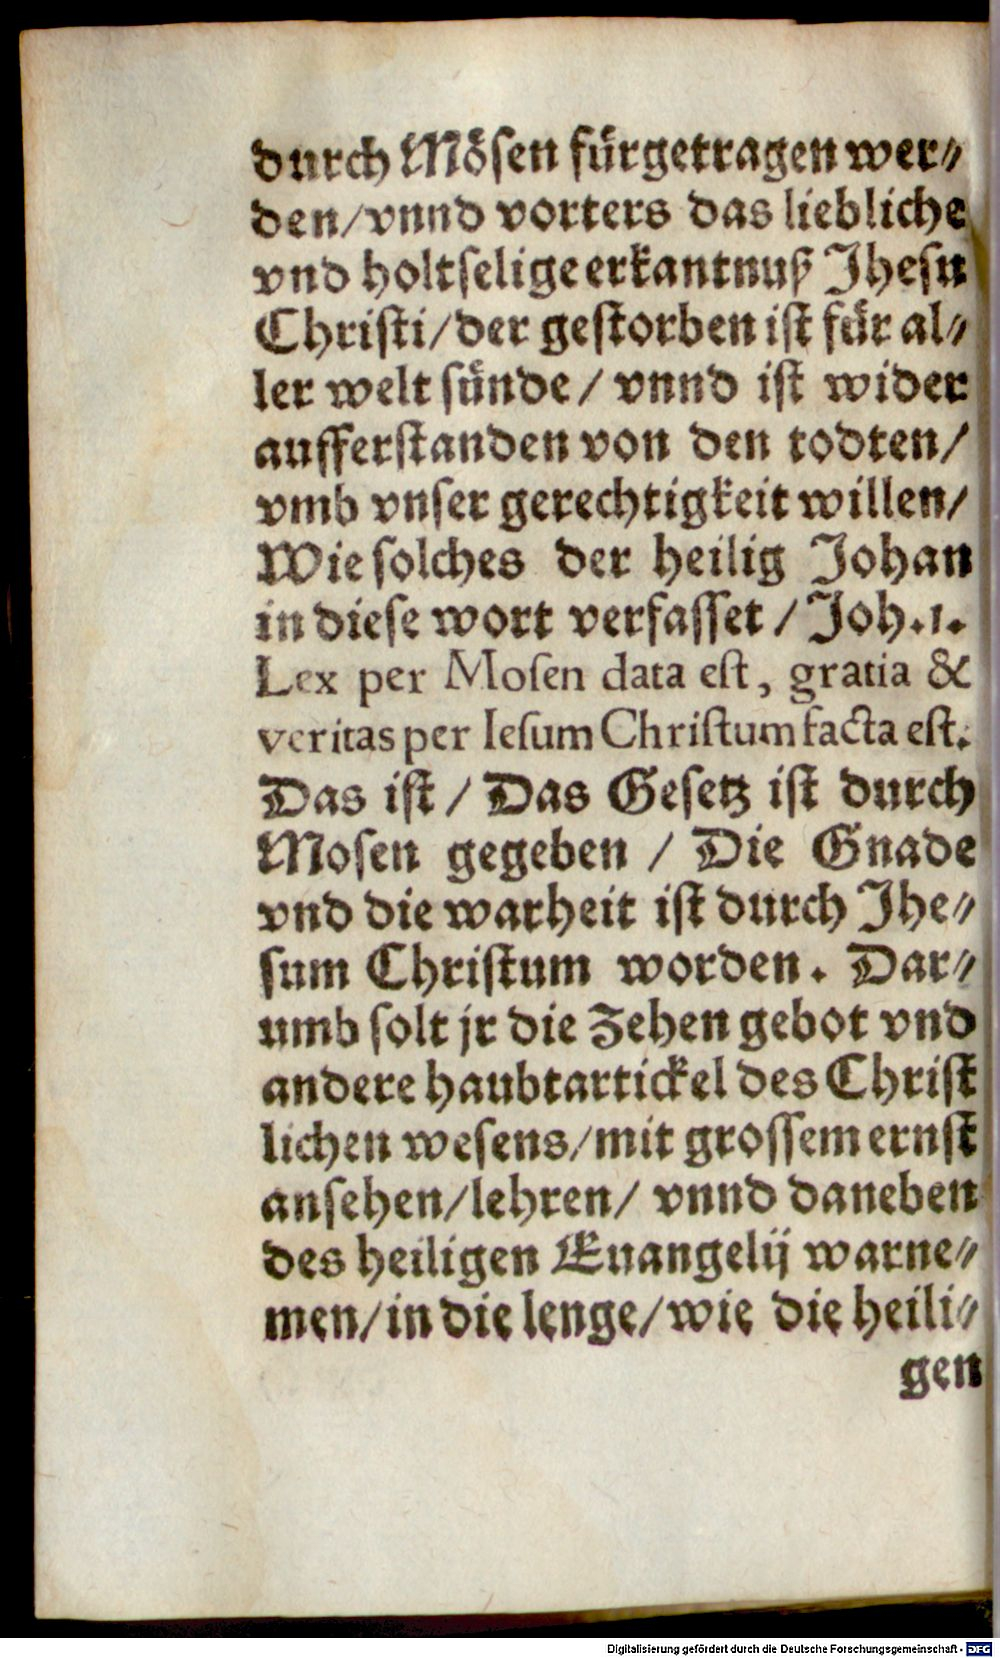 durch Mösen fürgetragen wer⸗
den/vnnd vorters das liebliche
vnd holtselige erkantnuß Jhesu
Christi/der gestorben ist für al⸗
ler welt sünde/ vnnd ist wider
aufferstanden von den todten/
vmb vnser gerechtigkeit willen/
Wie solches der heilig Johan
in diese wort verfasset/ Joh.1.
Lex per Moſen data eſt, gratia &
veritas per Ieſum Chriſtum facta eſt.
Das ist/ Das Gesetz ist durch
Mosen gegeben / Die Gnade
vnd die warheit ist durch Jhe⸗
sum Christum worden. Dar⸗
umb solt jr die Zehen gebot vnd
andere haubtartickel des Christ
lichen wesens/mit grossem ernst
ansehen/lehren/ vnnd daneben
des heiligen Euangelij warne⸗
men/in die lenge/wie die heili⸗
gen
Digitalisierung gefördert durch die Deutsche Forschungsgemeinschaft - DFG